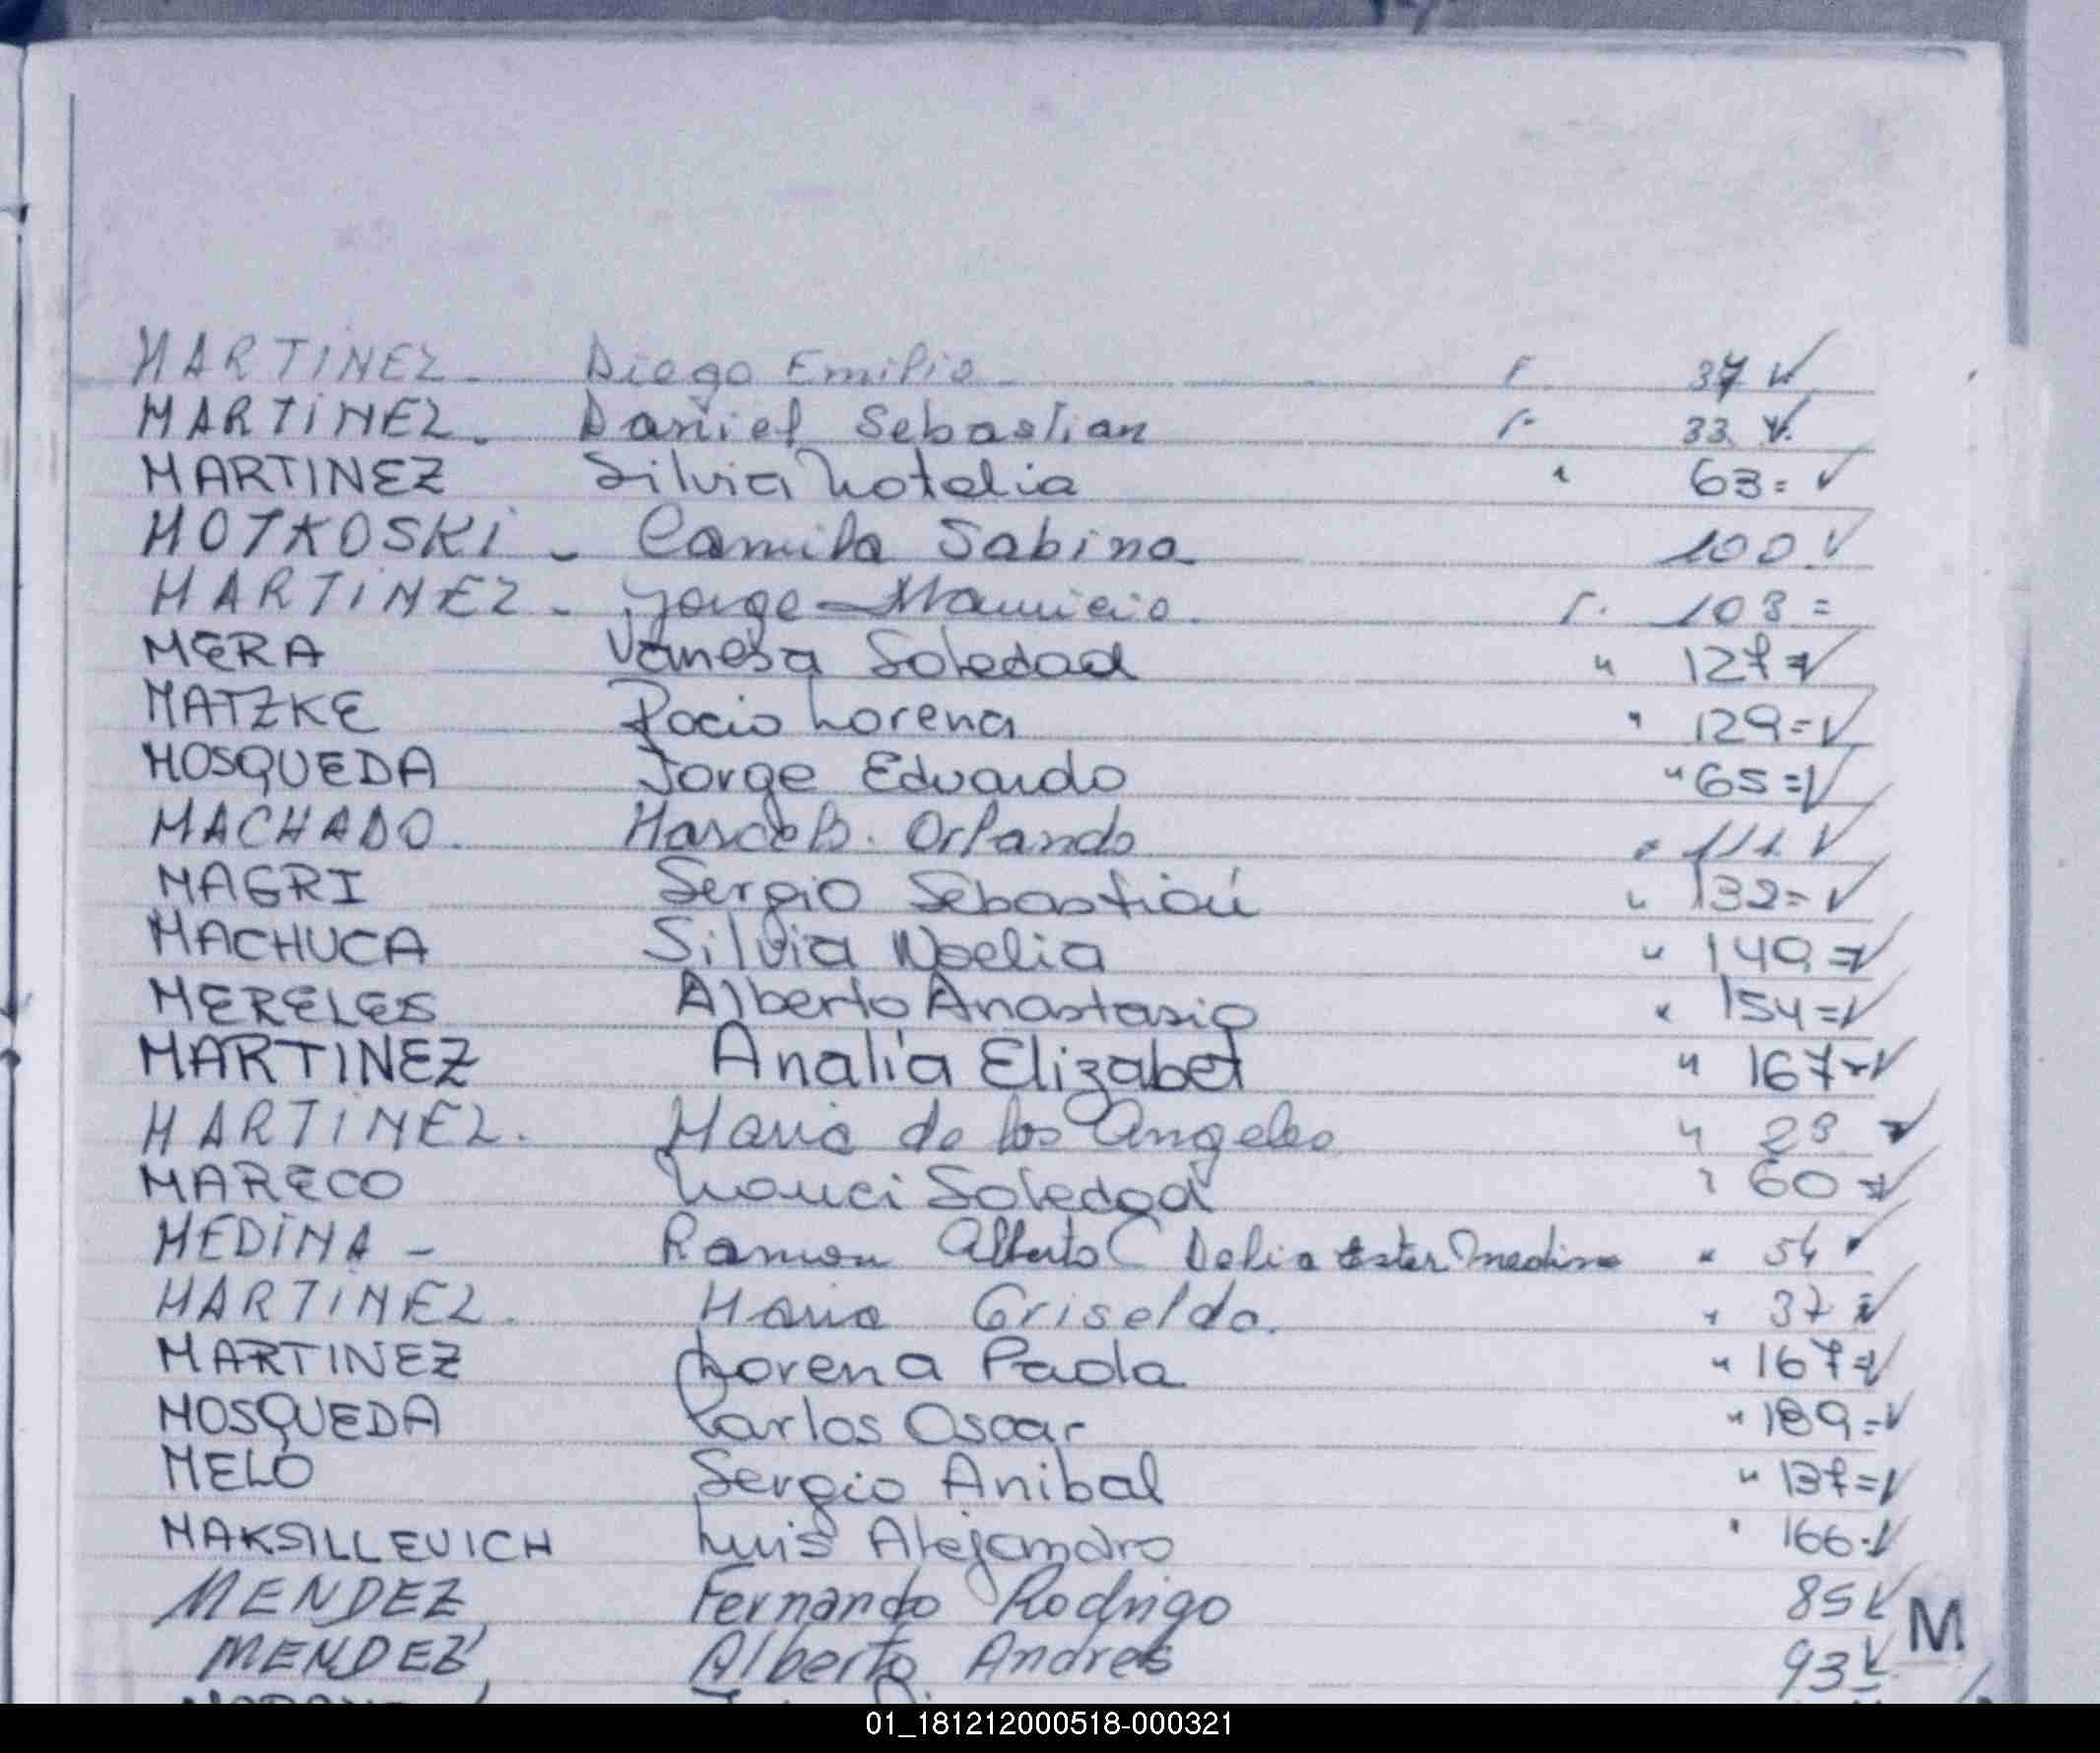 MARTINEZ - Diego Emilio - F 37 ✓
MARTINEZ - Daniel Sebastian F. 33 ✓
MARTINEZ Silvia Natalia " 63 = ✓
MOTKOSKI - Camila Sabina 100 ✓
MARTINEZ - Jorge Mauricio. F. 103 =
MERA Vanesa Soledad " 127 = ✓
MATZKE Rocio Lorena " 129 = ✓
MOSQUEDA Jorge Eduardo " 65 = ✓
MACHADO. Marcelo. Orlando " 111 ✓
MAGRI Sergio Sebastián " 132 = ✓
MACHUCA Silvia Noelia " 149 = ✓
MERELES Alberto Anastasio " 154 = ✓
MARTINEZ Analía Elizabet " 167 = ✓
MARTINEZ. Maria de los Angeles " 23 ✓
MARECO Nanci Soledad " 60 = ✓
MEDINA - Ramon Alberto ( Delia Ester Medina " 54 ✓
MARTINEZ. Maria Griselda. " 37 ✓
MARTINEZ Lorena Paola " 167 = ✓
MOSQUEDA Carlos Oscar " 189 = ✓
MELO Sergio Anibal " 137 = ✓
MAKSILLEVICH Luis Alejandro " 166 = ✓
MENDEZ Fernando Rodrigo 85 ✓
M
MENDEZ Alberto Andres 93 ✓
01_181212000518-000321